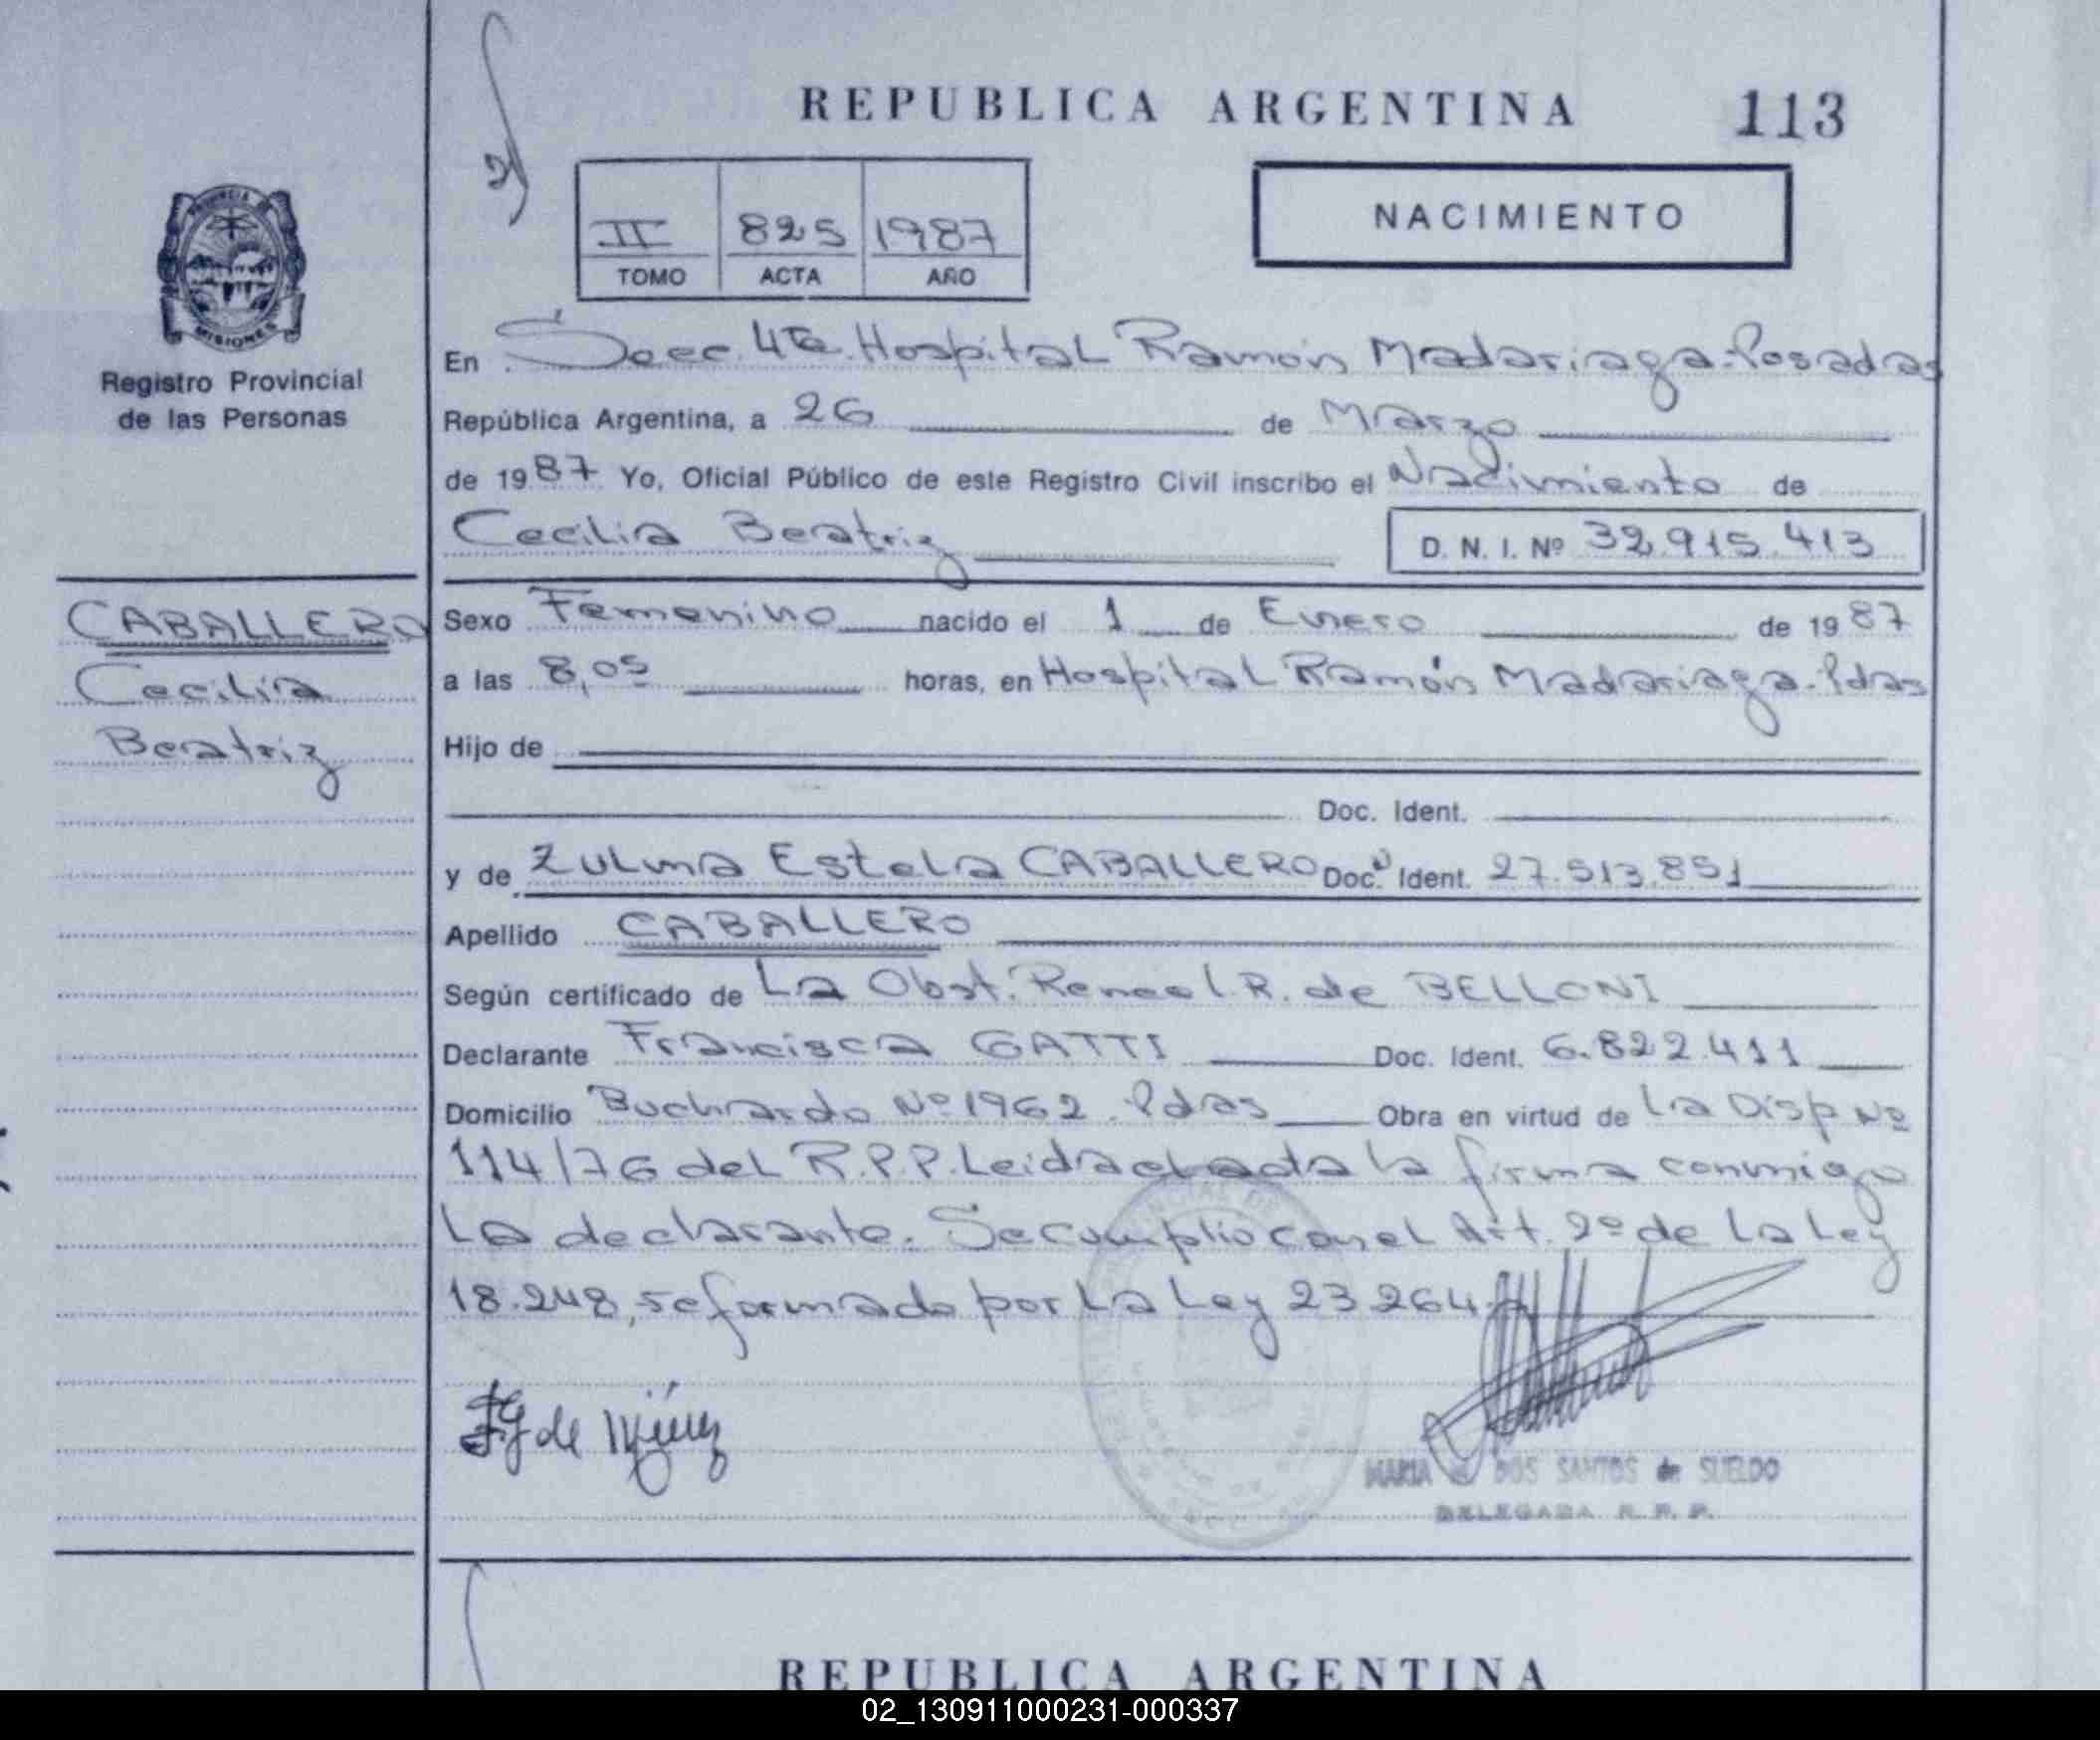 REPUBLICA ARGENTINA 113
II 825 1987
TOMO ACTA AÑO
NACIMIENTO
PROVINCIA DE
MISIONES
Registro Provincial
de las Personas
En Secc. 4ta. Hospital Ramón Madariaga-Posadas
República Argentina, a 26 de Marzo
de 1987 Yo, Oficial Público de este Registro Civil inscribo el Nacimiento de
Cecilia Beatriz D. N. I. Nº 32.915.413
CABALLERO
Cecilia
Beatriz
Sexo Femenino nacido el 1 de Enero de 1987
a las 8,05 horas, en Hospital Ramón Madariaga-Pdas
Hijo de
Doc. Ident.
y de Zulma Estela CABALLERO Doc. Ident. 27.513.851
Apellido CABALLERO
Según certificado de La Obst. Renee L.R. de BELLONI
Declarante Francisca GATTI Doc. Ident. 6.822.411
Domicilio Buchardo Nº 1962. Pdas Obra en virtud de La Disp Nº
114/76 del R.P.P. Leida el acta la firma conmigo
La declarante. Se cumplio con el Art. 2º de La Ley
18.248, reformado por La Ley 23.264.
MARIA DOS SANTOS de SUELDO
DELEGADA R. P. P.
REPUBLICA ARGENTINA
02_130911000231-000337